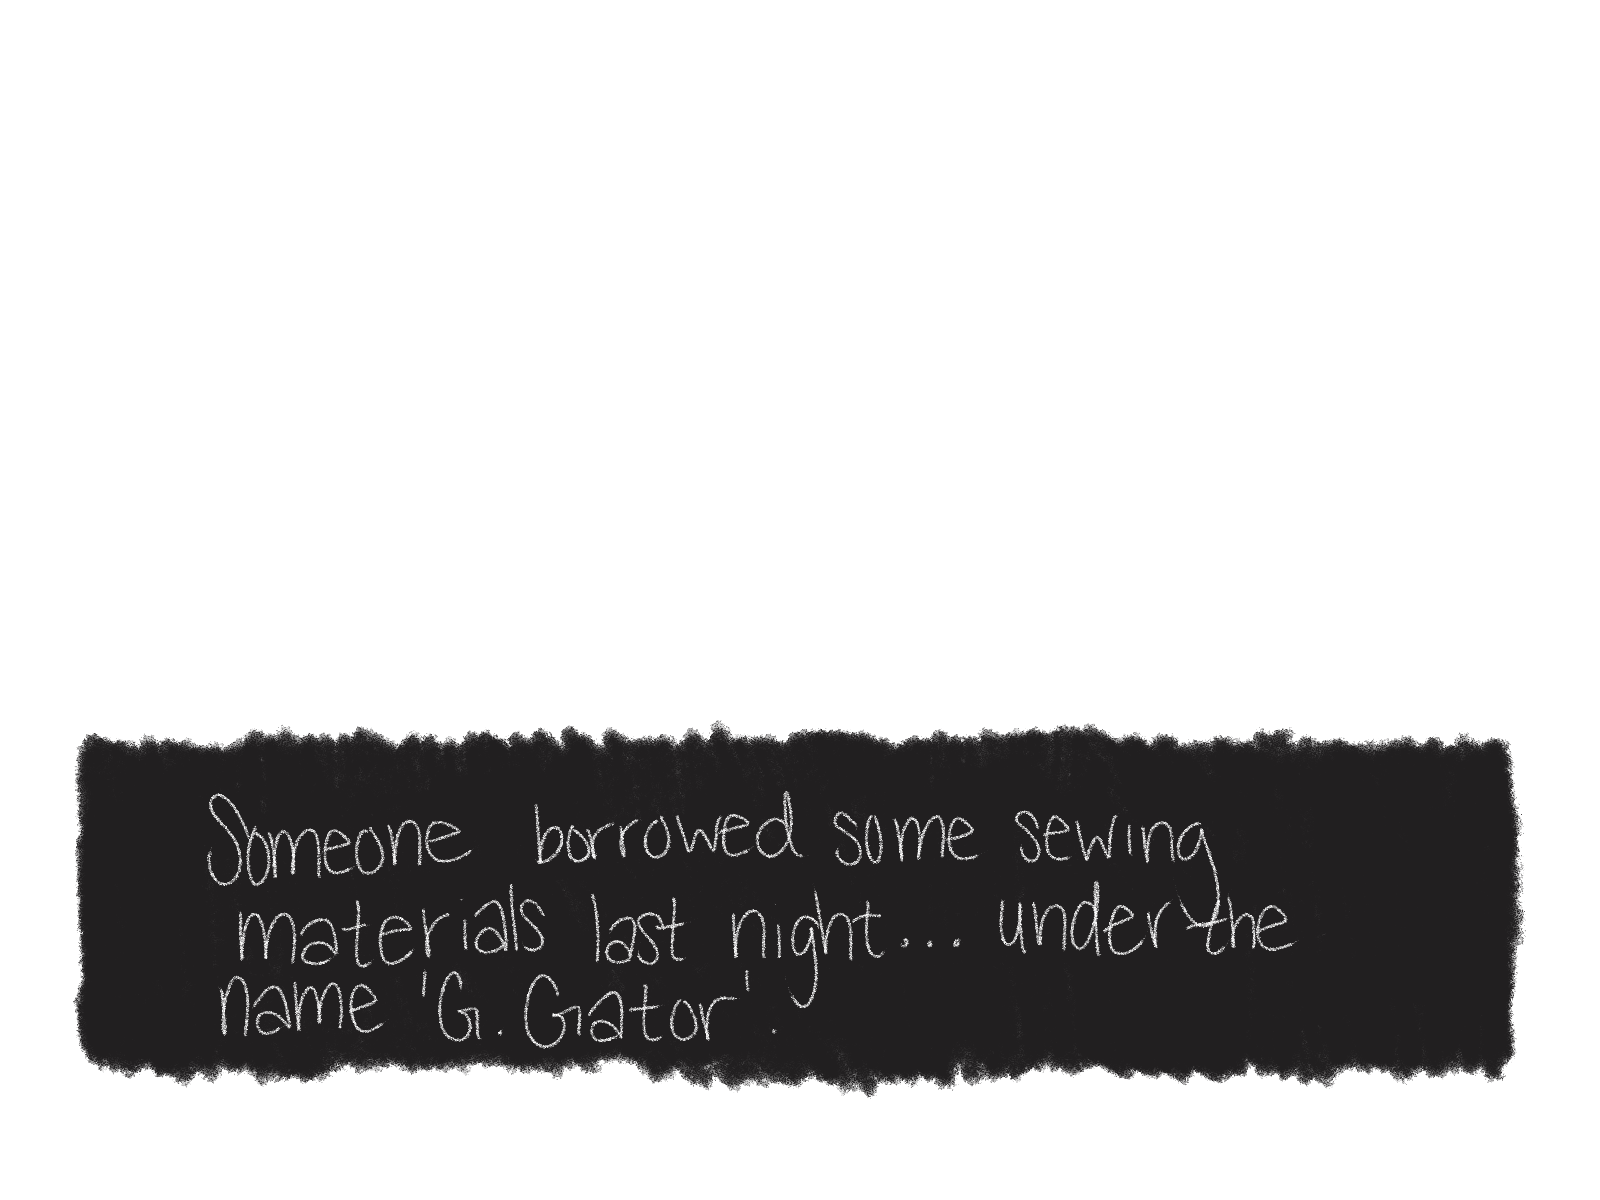 Someone borrowed some sewing
materials last night... under the
name 'G. Gator'.